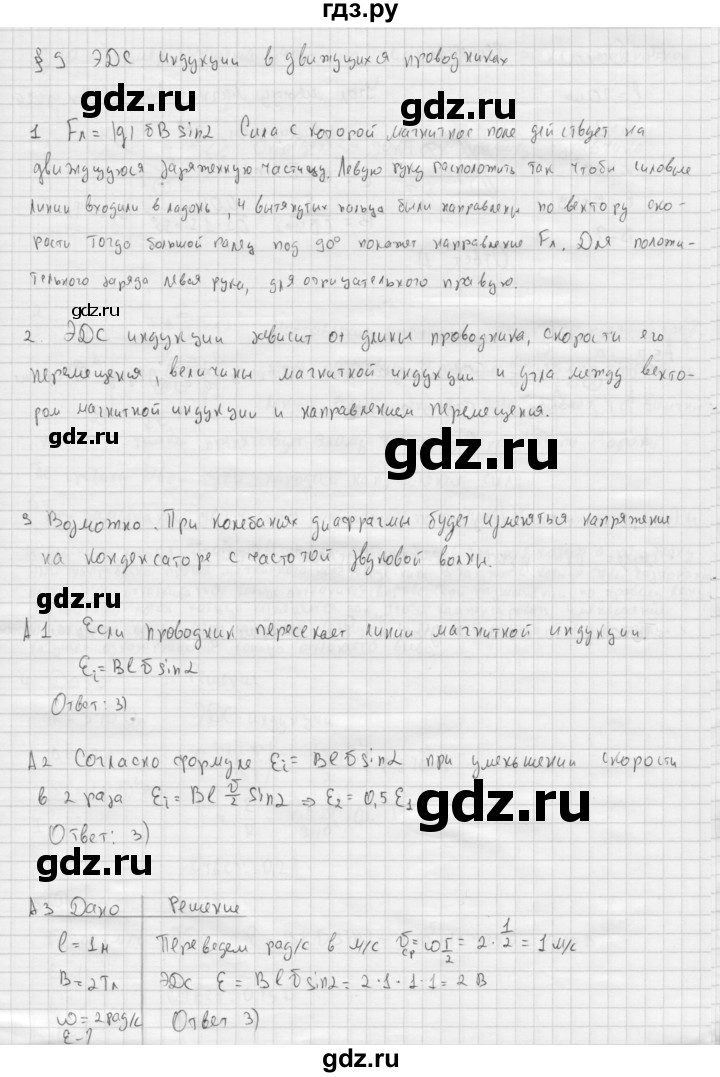 гдз.ру
§ 9 ЭДС индукции в движущихся проводниках
gdz.ru
1 Fл = |q| υ B sin α Сила с которой магнитное поле действует на
движущуюся заряженную частицу. Левую руку расположить так чтобы силовые
линии входили в ладонь, 4 вытянутых пальца были направлены по вектору ско-
рости Тогда большой палец под 90° покажет направление Fл. Для положи-
тельного заряда левая рука, для отрицательного правую.
gdz.ru
2 ЭДС индукции зависит от длины проводника, скорости его
перемещения, величины магнитной индукции и угла между векто-
ром магнитной индукции и направлением перемещения.
gdz.ru
gdz.ru
3 Возможно. При колебаниях диафрагмы будет изменяться напряжение
на конденсаторе с частотой звуковой волны.
gdz.ru
А 1 Если проводник пересекает линии магнитной индукции.
Ei = B l υ sin α
Ответ: 3)
gdz.ru
А 2 Согласно формуле Ei = B l υ sin α при уменьшении скорости
в 2 раза Ei = B l υ/2 sin α ⇒ E2 = 0,5 E1
gdz.ru
Ответ: 3)
gdz.ru
А 3 Дано Решение
l = 1 м Переведем рад/с в м/с υср = ω l/2 = 2 · 1/2 = 1 м/с
B = 2 Тл ЭДС E = B l υ sin α = 2 · 1 · 1 · 1 = 2 В
ω = 2 рад/с Ответ 3)
E - ?
gdz.ru
gdz.ru